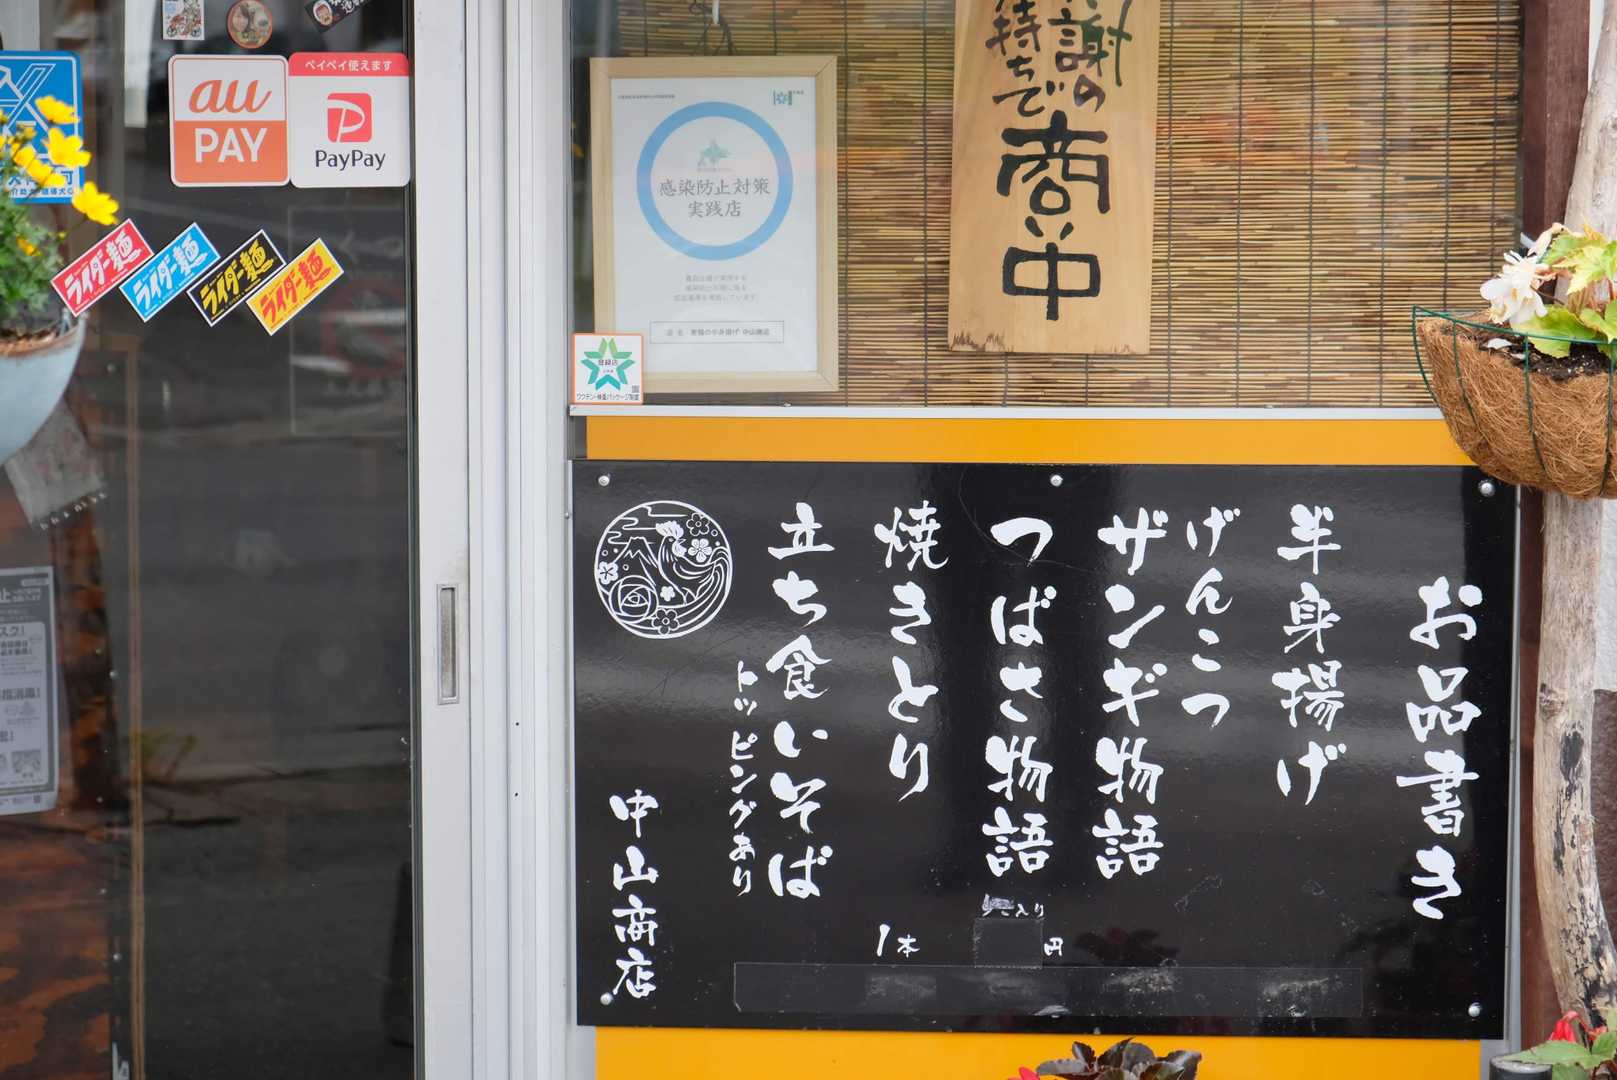 au
PAY
ペイペイ使えます
PayPay
ライダー麺
ライダー麺
ライダー麺
ライダー麺
感染防止対策
実践店
謝の
持ちで
商い中
登録店
ワクチン・検査パッケージ制度
お品書き
半身揚げ
げんこつ
ザンギ物語
つばさ物語
入り
円
焼きとり
1本
立ち食いそば
トッピングあり
中山商店